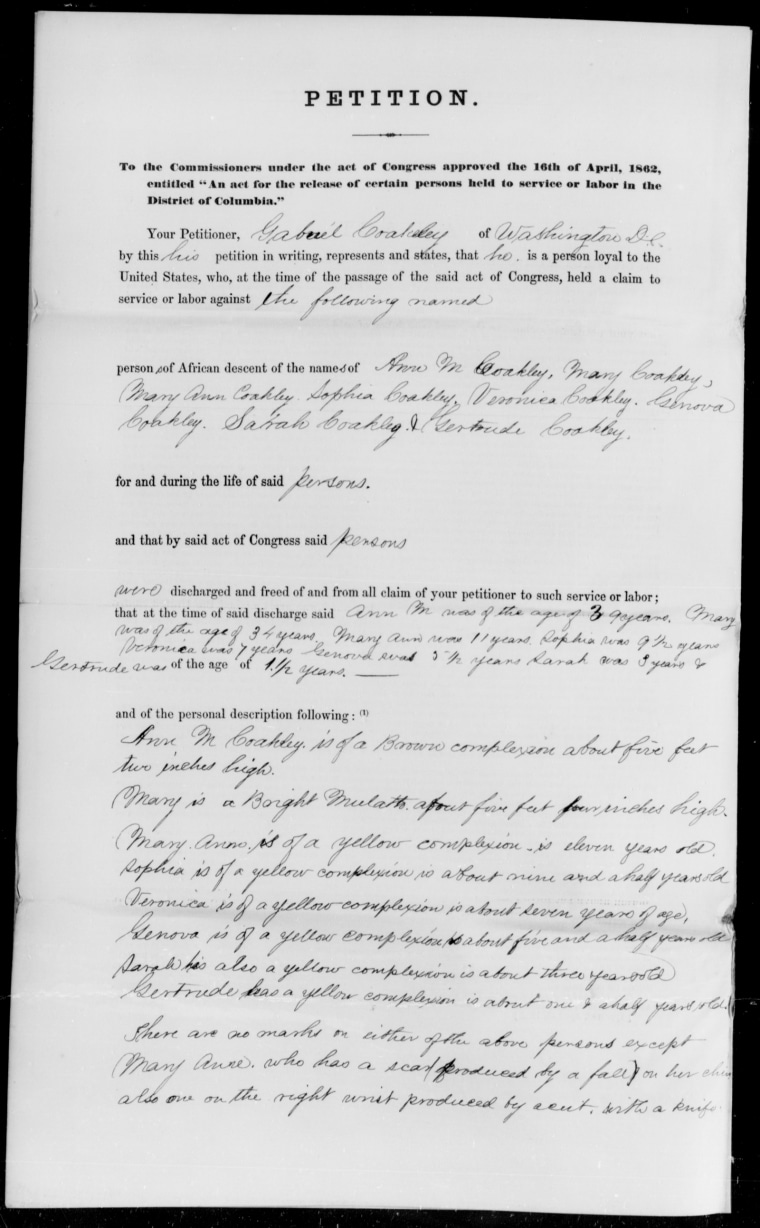 PETITION.
To the Commissioners under the act of Congress approved the 16th of April, 1862,
entitled "An act for the release of certain persons held to service or labor in the
District of Columbia."
Your Petitioner, Gabriel Coakley of Washington D.C.
by this his petition in writing, represents and states, that he. is a person loyal to the
United States, who, at the time of the passage of the said act of Congress, held a claim to
service or labor against the following named
persons of African descent of the names of Ann M Coakley, Mary Coakley,
Mary Ann Coakley. Sophia Coakley, Veronica Coakley. Genova
Coakley. Sarah Coakley. & Gertrude Coakley.
for and during the life of said persons.
and that by said act of Congress said persons
were discharged and freed of and from all claim of your petitioner to such service or labor;
that at the time of said discharge said Ann M was of the age of 39 years. Mary
was of the age of 34 years. Mary Ann was 11 years Sophia was 9 ½ years
Veronica was 7 years Genova was 5 ½ years Sarah was 3 years &
Gertrude was of the age of 1 ½ years.
and of the personal description following: (1)
Ann M Coakley. is of a Brown complexion about five feet
two inches high.
Mary is a Bright Mulatto. about five feet four inches high.
Mary. Ann. is of a yellow complexion - is eleven years old.
Sophia is of a yellow complexion is about nine and a half years old
Veronica is of a yellow complexion is about seven years of age,
Genova is of a yellow complexion, is about five and a half years old
Sarah is also a yellow complexion is about three years old
Gertrude has a yellow complexion is about one & a half years old.
There are no marks on either of the above persons except
Mary Ann. who has a scar (produced by a fall) on her chin
also one on the right wrist produced by a cut. with a knife.